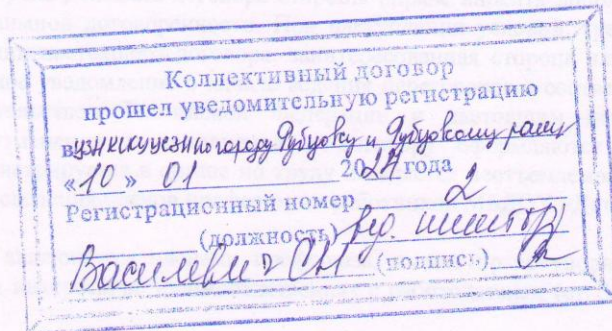 Коллективный договор
прошел уведомительную регистрацию
в по городу Рубцовску и Рубцовскому району
«10» 01 2024 года
Регистрационный номер 2
(должность) вед. инспектор
Василевич СН (подпись)